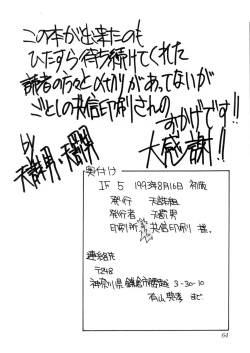 この本が出来たのも
ひたすら待ち続けてくれた
読者の方々と
があってないが
ごとしの共信印刷さんの
おかげです!!
大感謝!!
by
奥付け
IF 5 1993年8月16日 初版
発行
発行者
印刷所 共信印刷 様.
連絡先
〒248
神奈川県鎌倉市 3-30-10
まで
64